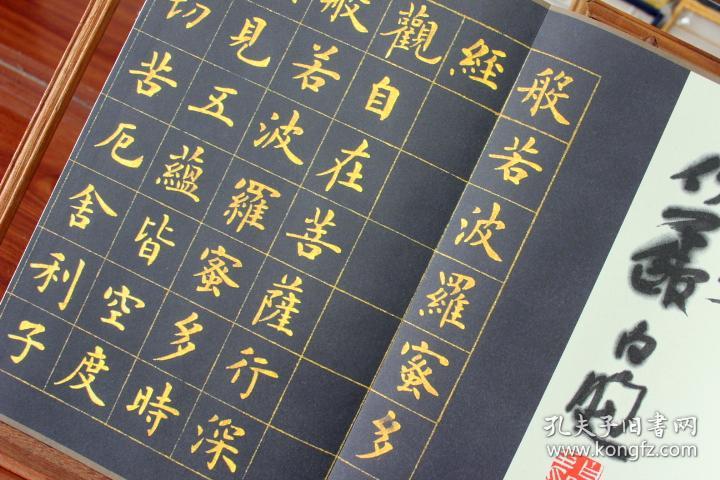 般若波羅蜜多
經
觀自在菩薩行深
般若波羅蜜多時
見五蘊皆空度
切苦厄舍利子
孔夫子旧书网
www.kongfz.com